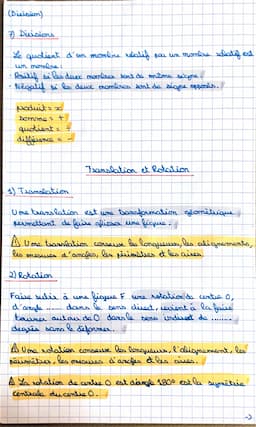 (Division)
7) Divisions
Le quotient d'un nombre relatif par un nombre relatif est
un nombre :
- Positif si les deux nombres sont de même signe.
- Négatif si les deux nombres sont de signe opposés.
produit = x
somme = +
quotient = ÷
différence = -
Translation et Rotation
1) Translation
Une translation est une transformation géométrique
permettant de faire glisser une figure.
⚠ Une translation conserve les longueurs, les alignements,
les mesures d'angles, les périmètres et les aires.
2) Rotation
Faire subir à une figure F une rotation de centre O,
d'angle ..... dans le sens direct, revient à la faire
tourner autour de O dans le sens indirect de .......
degrés sans la déformer.
⚠ Une rotation conserve les longueurs, l'alignement, les
périmètres, les mesures d'angles et les aires.
⚠ La rotation de centre O est d'angle 180° est la symétrie
centrale du centre O.